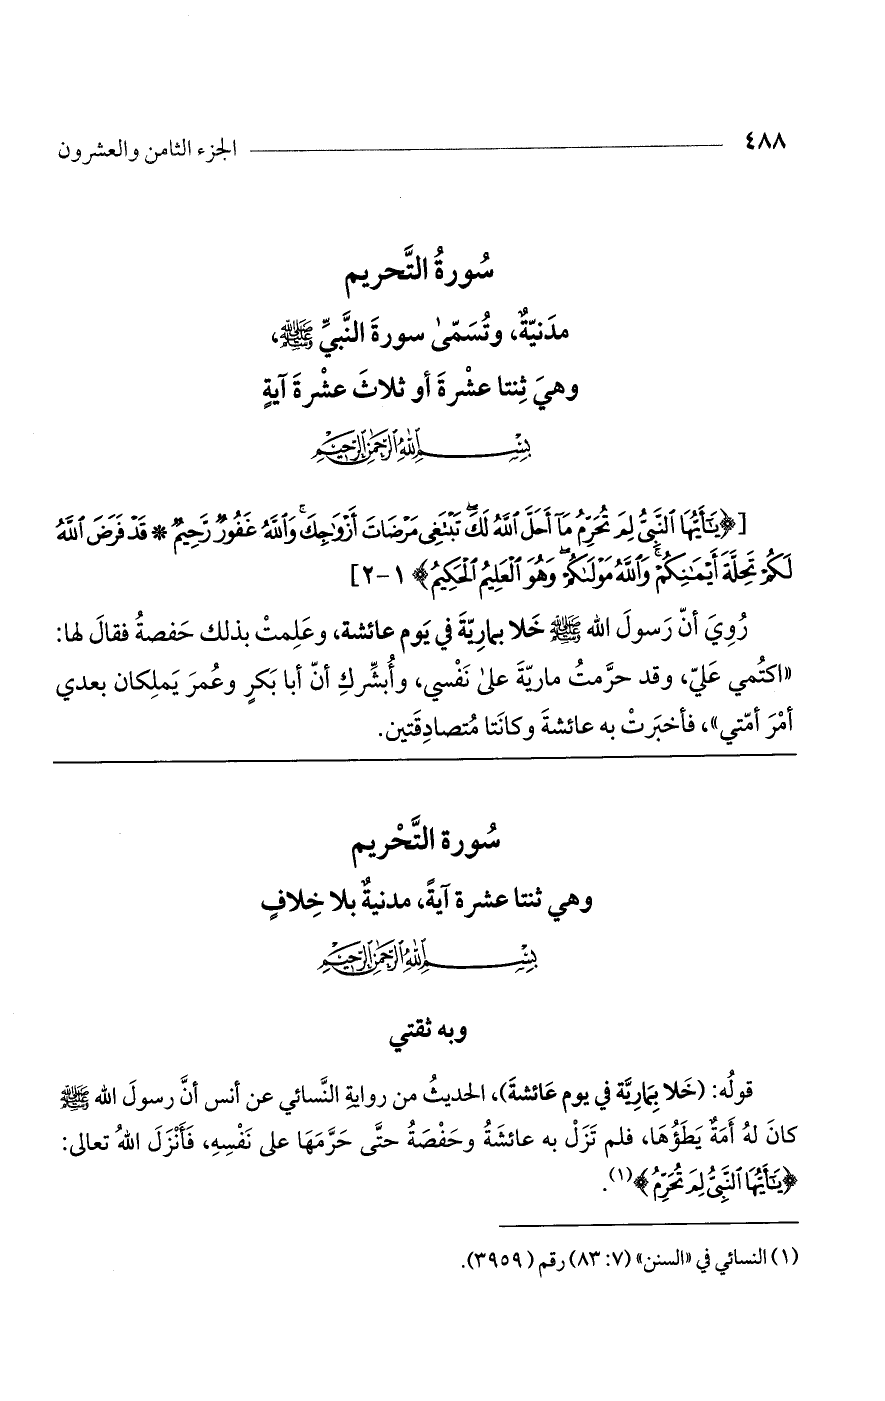 ٤٨٨ الجزء الثامن والعشرون
سُورةُ التَّحريم
مدَنيّةٌ، وتُسَمّىٰ سورةَ النَّبيِّ ﷺ،
وهيَ ثِنتا عشْرةَ أو ثلاثَ عشْرةَ آيةٍ
بِسْمِ ٱللَّهِ ٱلرَّحْمَٰنِ ٱلرَّحِيمِ
[﴿يَٰٓأَيُّهَا ٱلنَّبِىُّ لِمَ تُحَرِّمُ مَآ أَحَلَّ ٱللَّهُ لَكَ ۖ تَبْتَغِى مَرْضَاتَ أَزْوَٰجِكَ ۚ وَٱللَّهُ غَفُورٌ رَّحِيمٌ * قَدْ فَرَضَ ٱللَّهُ
لَكُمْ تَحِلَّةَ أَيْمَٰنِكُمْ ۚ وَٱللَّهُ مَوْلَىٰكُمْ ۖ وَهُوَ ٱلْعَلِيمُ ٱلْحَكِيمُ﴾ ١-٢]
رُوِيَ أنّ رَسولَ الله ﷺ خَلا بمارِيّةَ في يَوم عائشة، وعَلِمتْ بذلك حَفصةُ فقالَ لها:
«اكتُمي عَليّ، وقد حرَّمتُ ماريّةَ علىٰ نَفْسي، وأُبشِّركِ أنّ أبا بَكرٍ وعُمرَ يَملِكان بعدي
أمْرَ أمّتي»، فأخبَرتْ به عائشةَ وكانَتا مُتصادِقَتين.
سُورة التَّحْريم
وهي ثنتا عشرة آيةً، مدنيةٌ بلا خِلافٍ
بِسْمِ ٱللَّهِ ٱلرَّحْمَٰنِ ٱلرَّحِيمِ
وبه ثقتي
قولُه: (خَلا بِمَارِيَّة في يوم عَائشةَ)، الحديثُ من روايةِ النَّسائي عن أنس أنَّ رسولَ الله ﷺ
كانَ لهُ أَمَةٌ يَطَؤُهَا، فلم تَزَلْ به عائشَةُ وحَفْصَةُ حتَّى حَرَّمَهَا على نَفْسِهِ، فَأَنْزَلَ اللهُ تعالى:
﴿يَٰٓأَيُّهَا ٱلنَّبِىُّ لِمَ تُحَرِّمُ﴾(١).
(١) النسائي في «السنن» (٧: ٨٣) رقم (٣٩٥٩).